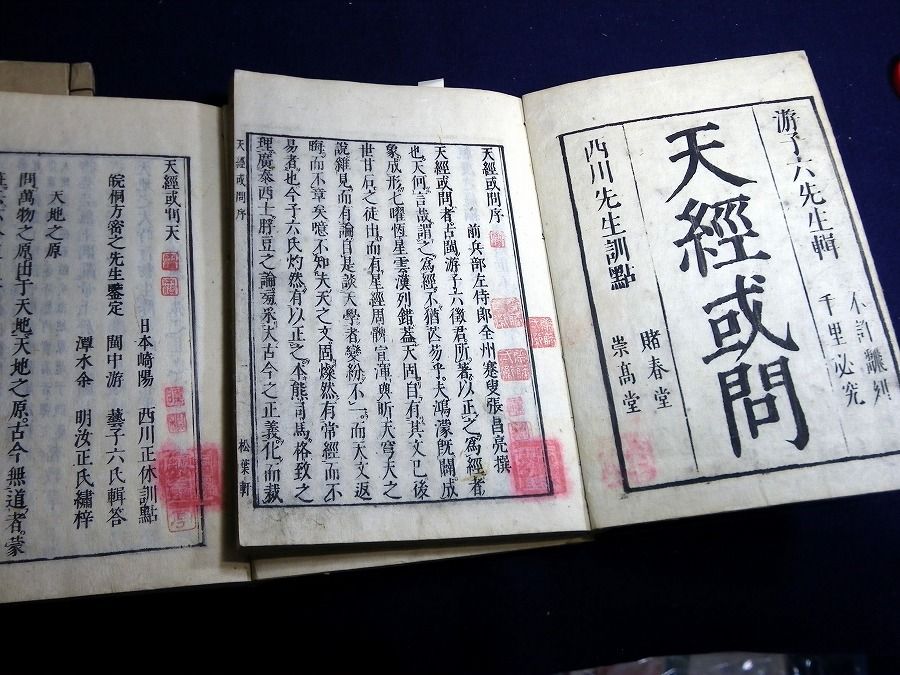 游子六先生輯
不許飜刻
千里必究
天經或問
賭春堂
崇髙堂
西川先生訓點
天經或問序
前兵部左侍郎全州蹇叟張昌亮撰
天經或問者占閩游子六徵君所著以正之為經者
也天何言哉謂之為經不猶 乎夫鴻濛旣闢成
象成形七曜恆星雲漢列錯葢天固自有其文已後
世甘石之徒出而有星經周髀宣渾輿昕天穹天之
說雜見而有論自是談天學者變紛不一而天文返
晦而不章矣噫不知夫天之文固燦然有常經而不
易者也今子六氏灼然有以正之本熊司馬格致之
理廣泰西士 豆之論 大古今之正義化而裁
天經或問序
一
松葉軒
天經或問天
日本﨑陽 西川正休訓點
皖桐方密之先生鑒定 閩中游 藝子六氏輯答
潭水余 明汝正氏繡梓
天地之原
問萬物之原由于天地天地之原古今無道者蒙